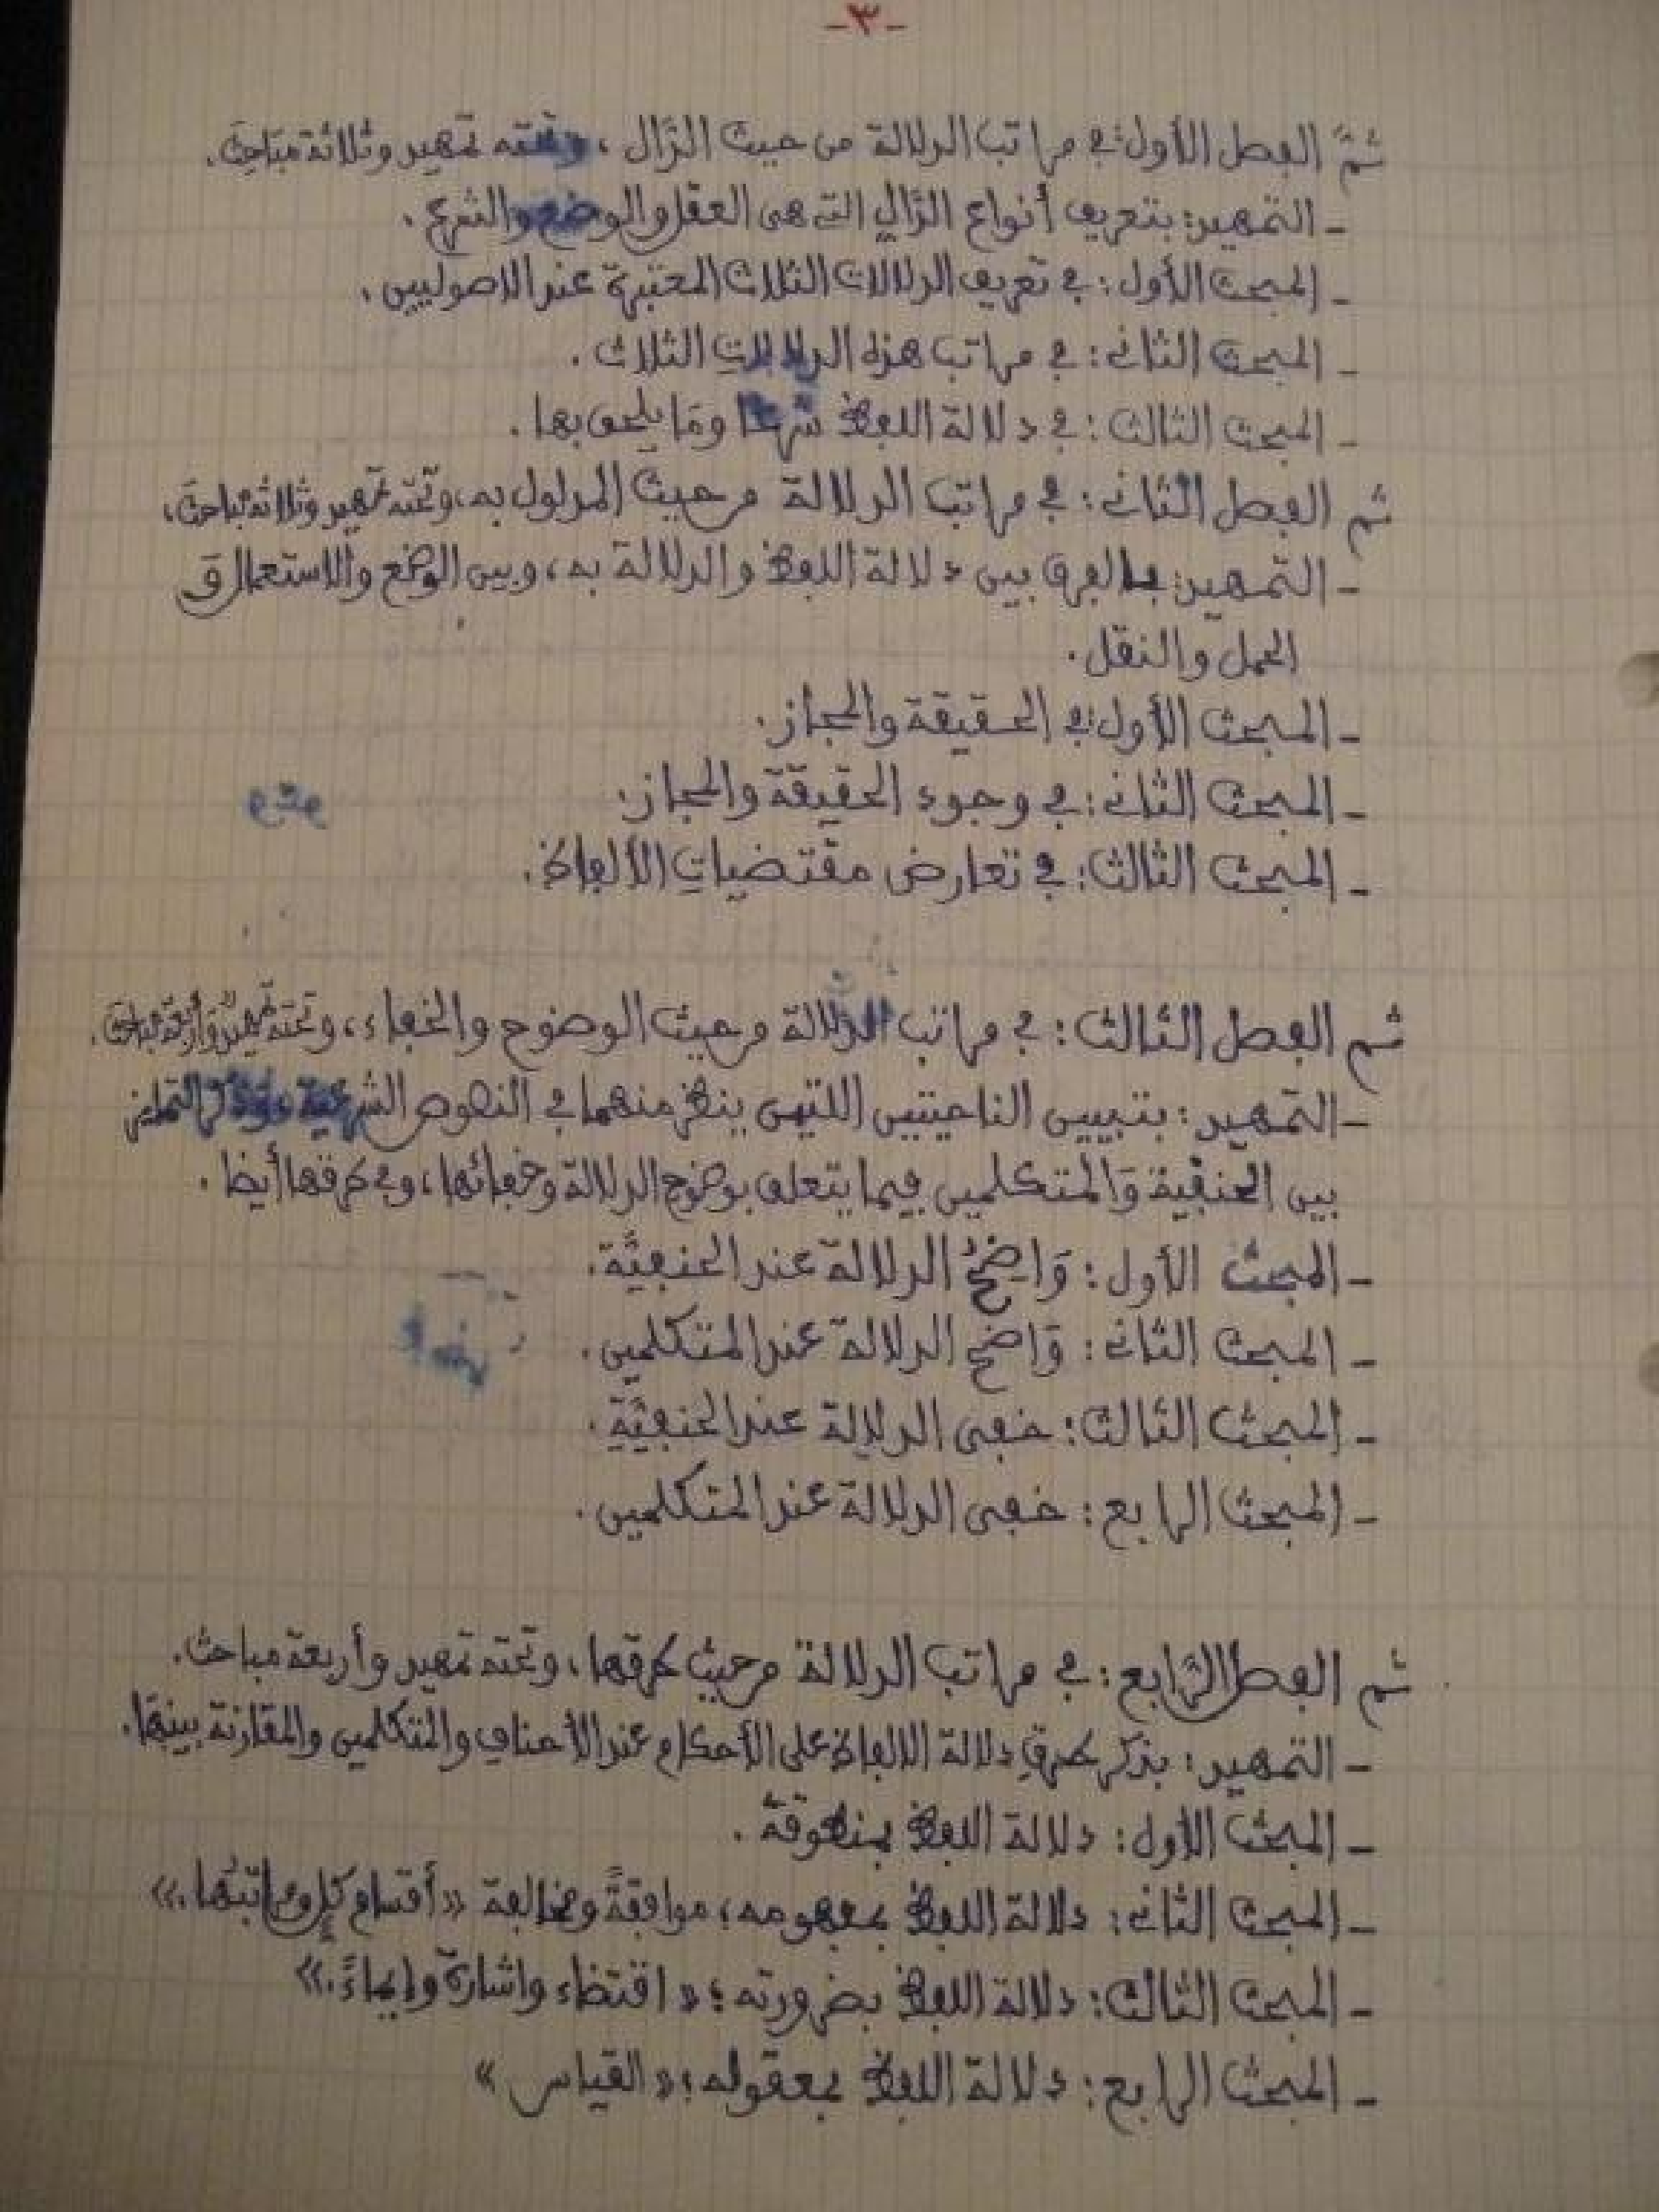 -٣-
ثمَّ الفصل الأول: في مراتب الدلالة من حيث الدَّال، وتحته تمهيد وثلاثة مباحث.
- التمهيد: بتعريف أنواع الدَّالِ التي هي العقل والوضع والشرع.
- المبحث الأول: في تعريف الدلالات الثلاث المعتبرة عند الاصوليين.
- المبحث الثاني: في مراتب هذه الدلالات الثلاث.
- المبحث الثالث: في دلالة اللفظ شرعا وما يلحق بها.
ثم الفصل الثاني: في مراتب الدلالة من حيث المدلول به، وتحته تمهيد وثلاثة مباحث.
- التمهيد: بالفرق بين دلالة اللفظ والدلالة به، وبين الوضع والاستعمال و
الحمل والنقل.
- المبحث الأول: في الحقيقة والمجاز.
- المبحث الثاني: في وجوه الحقيقة والمجاز.
- المبحث الثالث: في تعارض مقتضياتِ الألفاظ.
ثم الفصل الثالث: في مراتب الدلالة من حيث الوضوح والخفاء، وتحته تمهيدٌ وأربعة مباحث.
- التمهيد: بتبيين الناحيتين اللتين ينظر منهما في النصوص الشرعية التمايز
بين الحنفية والمتكلمين فيما يتعلق بوضوح الدلالة وخفائها، وفي طرقها أيضا.
- المبحث الأول: وَاضحُ الدلالة عند الحنفيَّة.
- المبحث الثاني: وَاضح الدلالة عند المتكلمين.
- المبحث الثالث: خفي الدلالة عند الحنفيَّةِ.
- المبحث الرابع: خفي الدلالة عند المتكلمين.
ثم الفصل الرَّابع: في مراتب الدلالة من حيث طرقها، وتحته تمهيد وأربعة مباحث.
- التمهيد: بذكر طرقِ دلالة الالفاظ على الأحكام عند الأحناف والمتكلمين والمقارنة بينهَا.
- المبحث الأول: دلالة اللفظ بمنطوقه.
- المبحث الثاني: دلالة اللفظ بمفهومه؛ موافقةً ومخالفة «أقسام كلٍ ومراتبُها.»
- المبحث الثالث: دلالة اللفظ بضرورته؛ «اقتضاء واشارة وإيماءً.»
- المبحث الرابع: دلالة اللفظ بمعقوله؛ «القياس»